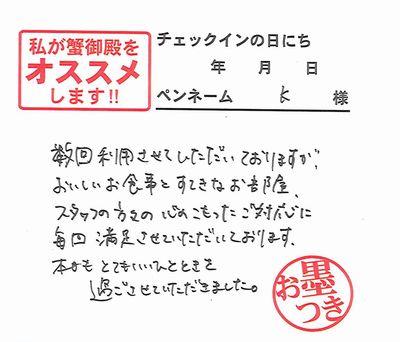 私が蟹御殿を
オススメ
します!!
チェックインの日にち
年 月 日
ペンネーム K 様
数回利用させていただいておりますが、
おいしいお食事とすてきなお部屋、
スタッフの方々の心のこもったご対応に
毎回満足させていただいております。
本日もとてもいいひとときを
過ごさせていただきました。
お墨つき